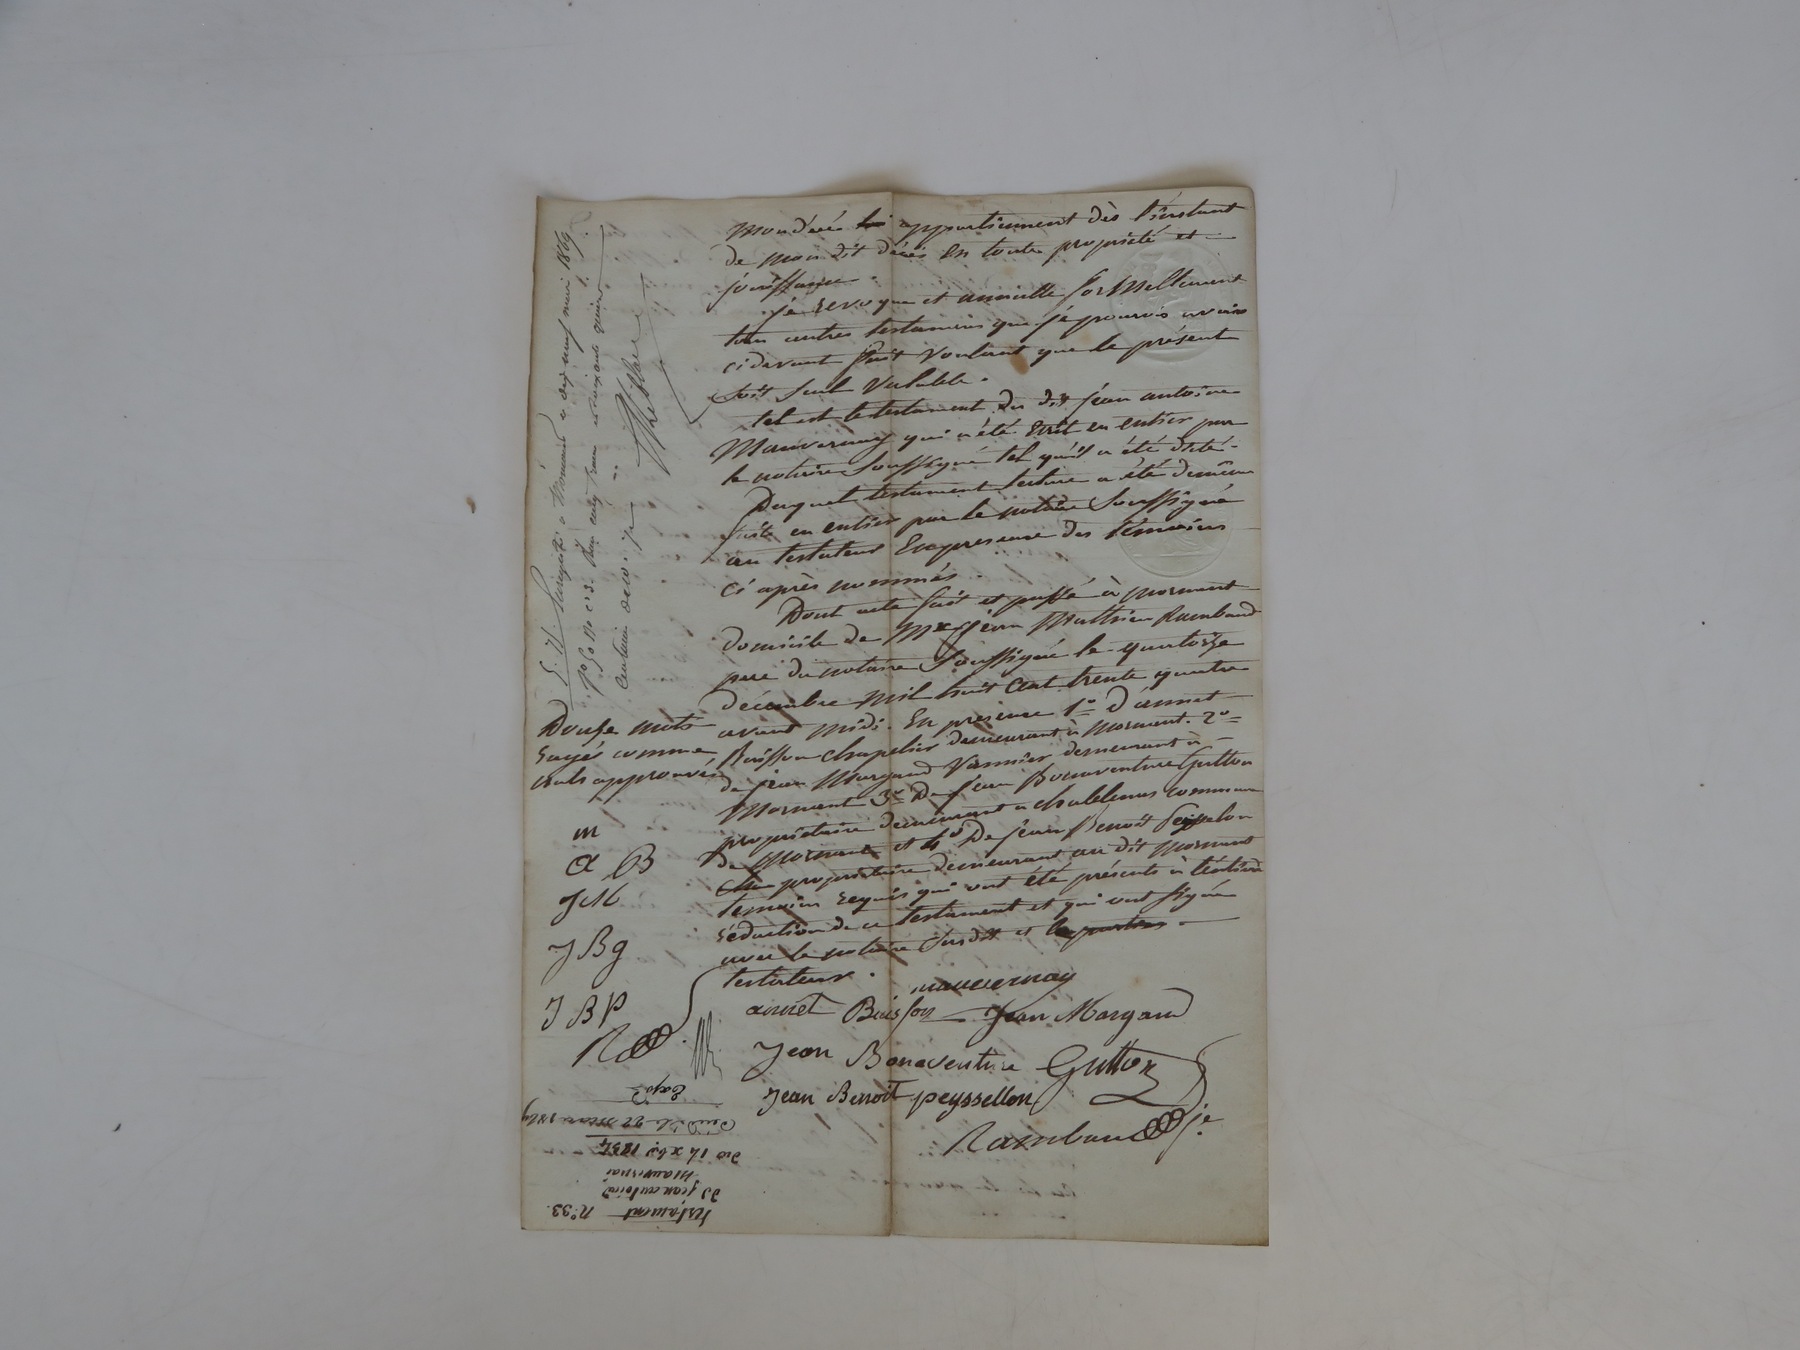 mon décès appartiennent dès l'instant
de mon dit décès en toute propriété et
jouissance.
Je revoque et annulle formellement
tous autres testamens que je pourois avoir
cidevant fait voulant que le présent
soit seul valable.
tel est le testament du dit jean antoine
Mauvernay qui a été Ecrit en entier par
le notaire soussigné tel qu'il a été dicté.
Duquel testament lecture a été de même
faite en entier par le notaire soussigné
au testateur En presence des témoins
ci après nommés.
Dont acte fait et passé à mornant
domicile de Mre jean Mathieu Rambaud
pere du notaire soussigné le quatorze
décembre mil huit cent trente quatre
avant midi. En presence 1° D'annet
Buisson chapelier demeurant à Mornant. 2°
de jean Margand Vannier demeurant à
Mornant 3° De jean Bonaventure Gutton
propriétaire demeurant a commune
de Mornant et 4° De jean Benoit Peysselon
propriétaire demeurant au dit Mornant
temoins requis qui ont été présents à l'entière
rédaction de ce testament et qui ont signé
avec le notaire susdit et le
testateur.
mauvernay
annet Buisson Jean Margand
Jean Bonaventure Gutton
Jean Benoit peyssellon
Rambaud je
Douze mots
rayés comme
nuls approuvés
m
a B
J M
J B g
J B P
R
Enregistré à Mornant le dix neuf mai 1869
testament n° 33.
de jean antoine
Mauvernai
du 14 xbre 1834
Expé